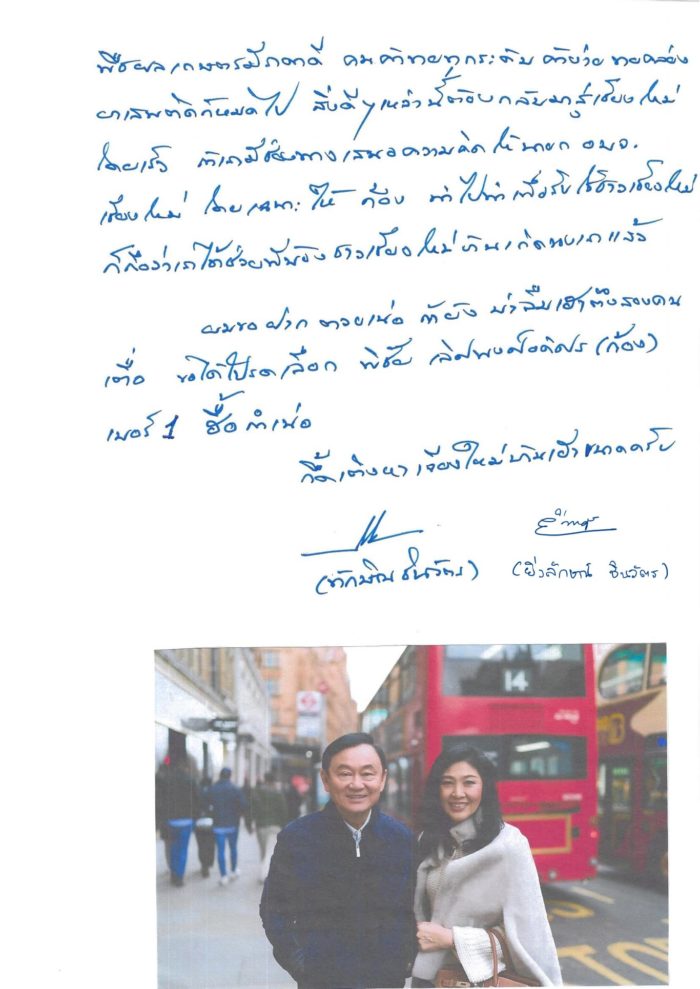 พืชผลเกษตรมีราคาดี คนค้าขายทุกระดับ ค้าง่าย ขายคล่อง
ยาเสพติดก็หมดไป สิ่งดีๆเหล่านี้ต้องกลับมาสู่เชียงใหม่
โดยเร็ว ถ้าเรามีช่องทางเสนอความคิดให้นายก อบจ.
เชียงใหม่ โดยเฉพาะให้ ก้อง นำไปทำเพื่อรับใช้ชาวเชียงใหม่
ก็ถือว่าเราได้ช่วยพี่น้องชาวเชียงใหม่บ้านเกิดของเราแล้ว
ผมขอฝากตวยเน่อ ถ้ายังบ่าลืมเฮาตึงสองคน
เตื่อ ขอได้โปรดเลือก พิชัย เลิศพงศ์อดิศร (ก้อง)
เบอร์ 1 ฮื้อกำเน่อ
กึ๊ดเติงหาเจียงใหม่บ้านเฮาขนาดครับ
(ทักษิณ ชินวัตร) (ยิ่งลักษณ์ ชินวัตร)
14